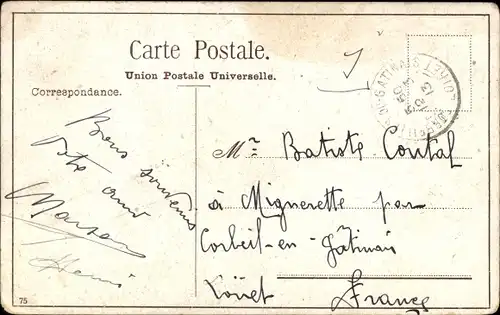 Carte Postale.
Union Postale Universelle.
Correspondance.
Bons souvenirs
Votre ami
Marson
Henri
Mr Batiste Coutal
à Mignerette par
Corbeil-en-Gâtinais
Loiret
France
GATINAIS LOIRET
75